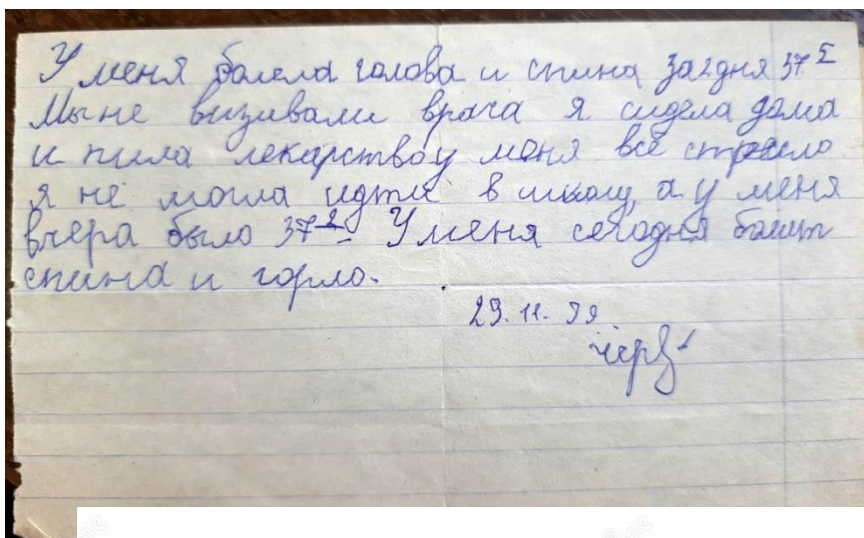 У меня болела голова и спина за 2 дня 37⁵
Мы не визивали врача я сидела дома
и пила лекарство у меня все
я не могла идти в школу, а у меня
вчера было 37² У меня сегодня болит
спина и горло.
29.11.99